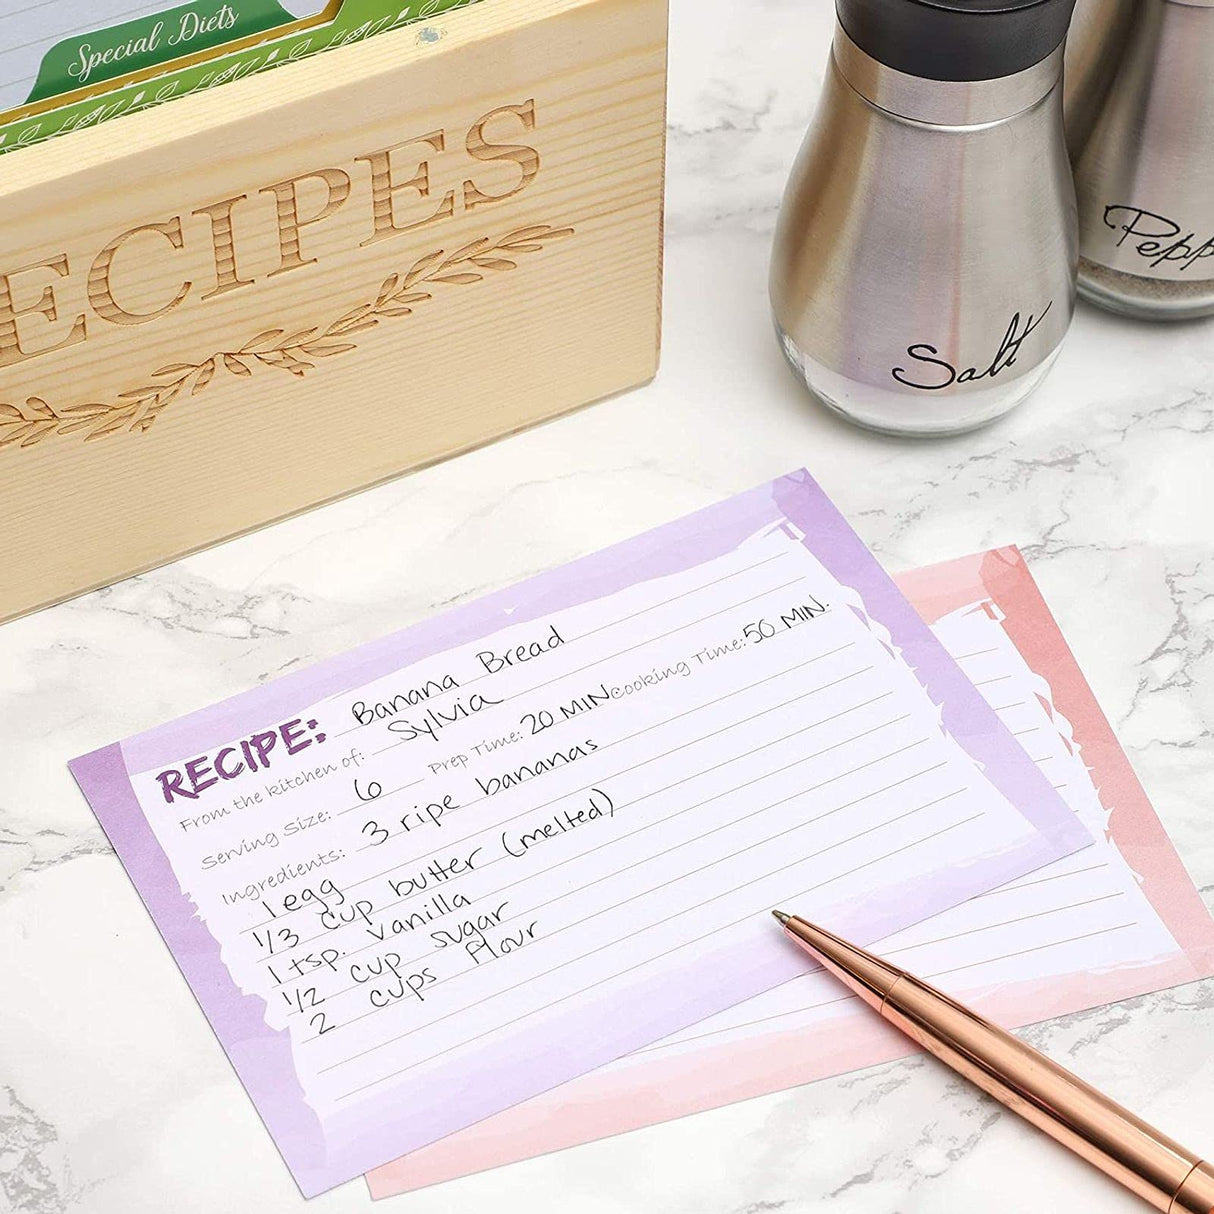 Special Diets
RECIPES
Salt
Pepp
RECIPE: Banana Bread
From the kitchen of: Sylvia
Serving Size: 6 Prep Time: 20 MIN Cooking Time: 50 MIN.
Ingredients: 3 ripe bananas
1 egg
1/3 cup butter (melted)
1 tsp. vanilla
1/2 cup sugar
2 cups Flour